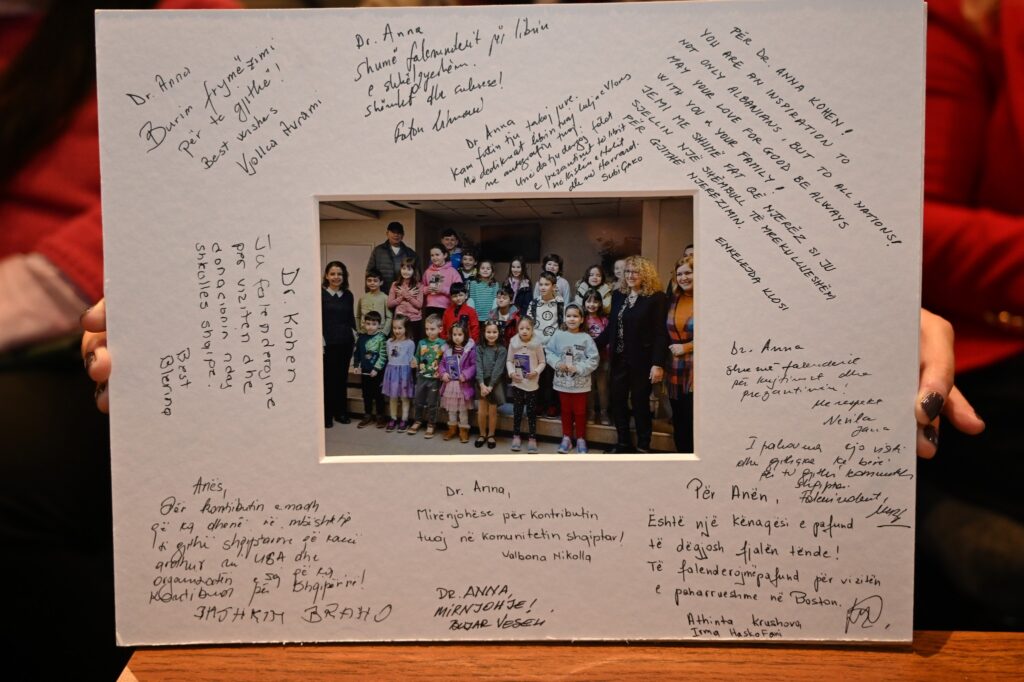 Dr. Anna
Burim frymëzimi
për të gjithë!
Best wishes
Vjollca Avrami
Dr. Anna
Shumë faleminderit për librin
e shkëlqyeshëm.
Shëndet dhe suksese!
Dr Anna
Kam fatin t'ju takoj juve.
me autografin tuaj.
dhe në Harvard.
PËR DR. ANNA KOHEN!
YOU ARE AN INSPIRATION TO
NOT ONLY ALBANIANS, BUT TO ALL NATIONS!
MAY YOUR LOVE FOR GOOD BE ALWAYS
WITH YOU & YOUR FAMILY!
JEMI ME SHUMË FAT QË NJERËZ SI JU
SJELLIN NJË SHËMBULL TË MREKULLUESHËM
PËR GJITHË NJERËZIMIN.
ENKELEJDA KLOSI
Dr. Kohen
Ju falenderojme
për vizitën dhe
donacionin ndaj
shkolles shqipe.
Best
Blerina
Dr. Anna
Shumë falenderit
për kujtimet dhe
prezantimin!
Me respekt
Nevila
Jana
për të gjithë komunitetin
shqiptar.
Faleminderit,
Anës,
Për kontributin e madh
që ka dhënë në mbështetje
të gjithë shqiptarëve që kanë
ardhur në USA dhe
organizatën e saj që ka
kontribuar për Shqipërinë!
BRAHO
Dr. Anna,
Mirënjohëse për kontributin
tuaj në komunitetin shqiptar!
Valbona Nikolla
DR. ANNA,
MIRNJOHJE!
BUJAR VESELI
Për Anën,
Është një kënaqësi e pafund
të dëgjosh fjalën tënde!
Të falenderojmë pafund për vizitën
e paharrueshme në Boston.
Athinta Krushova
Irma Haskofani